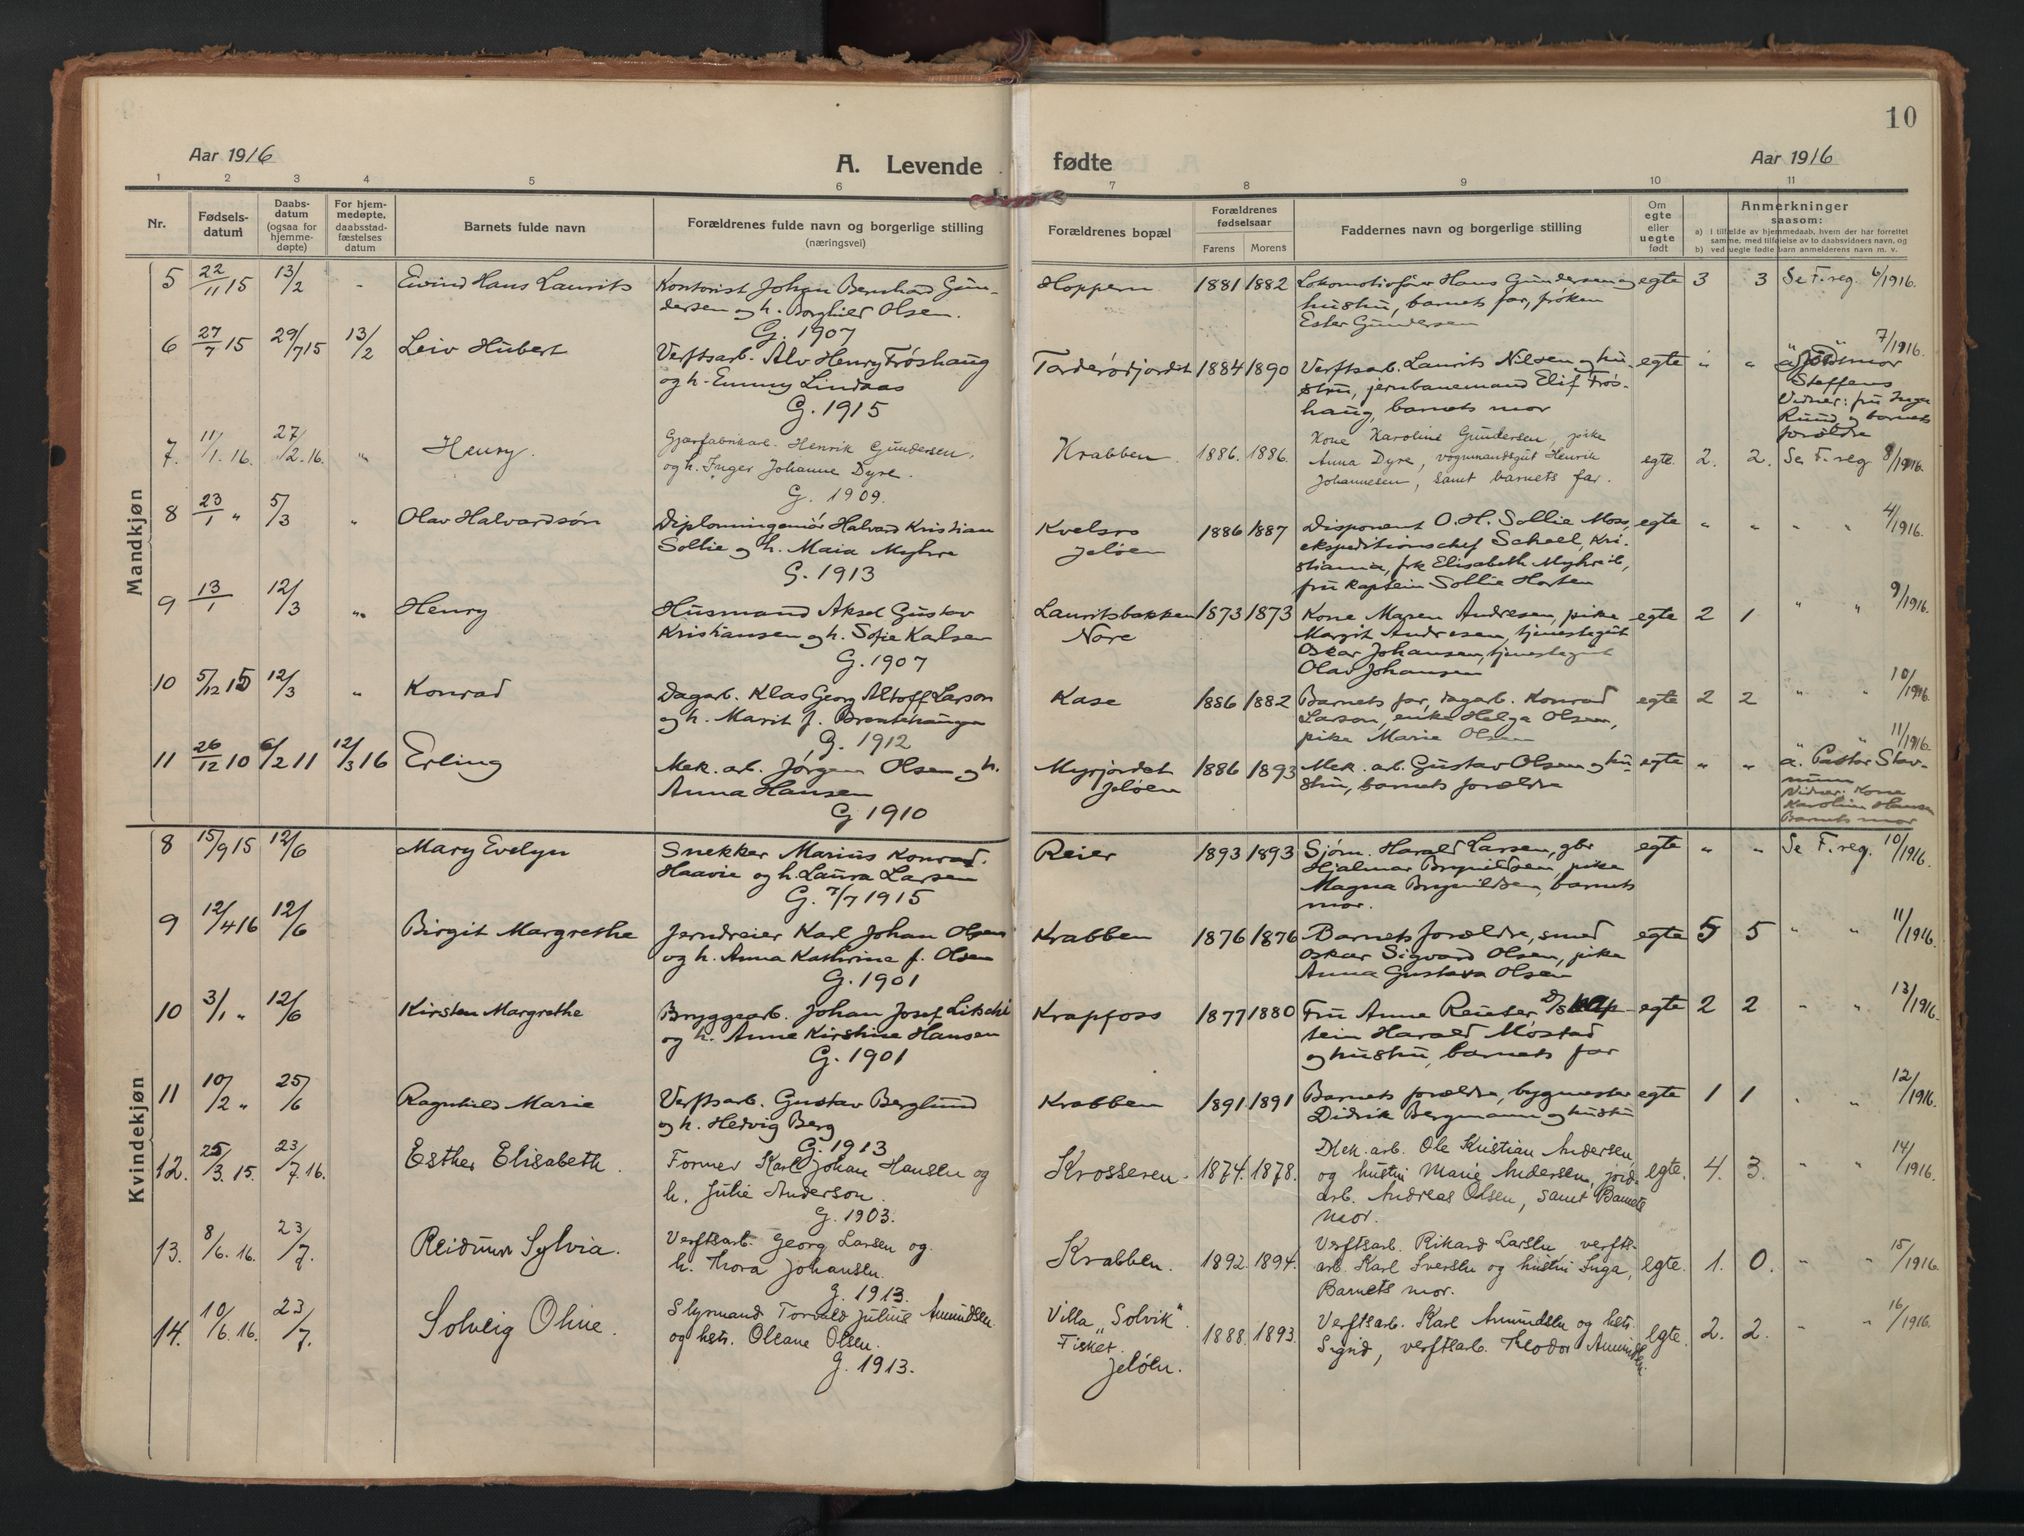 10
Aar 1916
A. Levende
fødte
Aar 1916
1 2 3 4 5 6 7 8 9 10 11
Nr.
Fødsels-
datum
Daabs-
datum
(ogsaa for
hjemme-
døpte)
For hjem-
medøpte,
daabsstad-
fæstelses
datum
Barnets fulde navn
Forældrenes fulde navn og borgerlige stilling
(næringsvei)
Forældrenes bopæl
Forældrenes
fødselsaar
Farens Morens
Faddernes navn og borgerlige stilling
Om
egte
eller
uegte
født
Anmerkninger
saasom:
a) I tilfælde av hjemmedaab, hvem der har forrettet
samme, med tilføielse av to daabsvidners navn, og
b) ved uegte fødte barn anmelderens navn m. v.
Mandkjøn
5 22/11 15 13/2 - Eivind Hans Laurits
Kontorist Johan Bernhard Gun-
dersen og h. Borghild Olsen.
G. 1907
Hoppern 1881 1882
Lokomotivfører Hans Gundersen og
hustru, barnets far, frøken
Ester Gundersen
egte 3 3 Se F. reg. 6/1916.
6 27/7 15 29/7 15 13/2 Leiv Hubert
Verftsarb. Alv Henry Frøshaug
og h. Emmy Lindaas
G. 1915
Torderødjordet 1884 1890
Verftsarb. Laurits Nilsen og hu-
stru, jernbanemand Elif Frøs-
haug, barnets mor
egte " " " 7/1916.
a) Jordmor
Steffens
Vidner: fru Inga
Ruud og barnets
forældre
7. 11/1. 16. 27/2. 16. " Henry.
Gjærfabrikarb. Henrik Gundersen,
og h. Inger Johanne Dyre.
G. 1909.
Krabben 1886. 1886.
Kone Karoline Gundersen, pike
Anna Dyre, vognmandsgut Henrik
Johannesen, samt barnets far.
egte. 2. 2. Se F. reg 8/1916.
8 23/1 " 5/3 " Olav Halvardsøn
Diplomingeniør Halvard Kristian
Sollie og h. Maia Myhre
G. 1913
Kvelsro
Jeløen
1886 1887
Disponent O. H. Sollie Moss,
ekspeditionschef Scheel, Kri-
stiania, frk Elisabeth Myhre ib,
fru kaptein Sollie Horten
egte " " " " 4/1916.
9 13/1 12/3 " Henry
Husmand Aksel Gustav
Kristiansen og h. Sofie Karlsen
G. 1907
Lauritsbakken
Nore
1873 1873
Kone Maren Andresen, pike
Margit Andresen, tjenestegut
Oskar Johansen, tjenestegut
Olav Johansen
egte 2 1 " " 9/1916.
10 5/12 15 12/3 " Konrad
Dagarb. Klas Georg Altoff Larson
og h. Marit f.
G. 1912
Kase 1886 1882
Barnets far, dagarb. Konrad
Larson, enke Helga Olsen,
pike Marie Olsen
egte 2 2 " " 10/1916.
11 26/12 10 6/2 11 12/3 16 Erling
Mek. arb. Jørgen Olsen og h.
Anna Hansen
G 1910
Myrjordet
Jeløen
1886 1893
Mek. arb. Gustav Olsen og hu-
stru, barnets forældre
egte " " 11/1916.
a. Pastor Stav-
num
Vidner: Kone
Karoline Hansen
Barnets mor
Kvindekjøn
8 15/9 15 12/6 Mary Evelyn
Snekker Marius Konrad
Haavie og h. Laura Larsen
G. 7/7 1915
Reier 1893 1893
Sjøm. Harald Larsen, gbr
Hjalmar Brynildsen, pike
Magna Brynildsen, barnets
mor.
egte " " Se F. reg. 10/1916.
9 12/4 16 12/6 Birgit Margrethe
Jerndreier Karl Johan Olsen
og h. Anna Kathrine f. Olsen
G. 1901
Krabben 1876 1876
Barnets forældre, smed
Oskar Sigvard Olsen, pike
Anna Gustava Olsen
egte 5 5 " " 11/1916.
10 3/1 " 12/6 Kirsten Margrethe
Bryggearb. Johan Josef Litschi
og h. Anne Kirstine Hansen
G. 1901
Krapfoss 1877 1880
Fru Anne Reuter D/S kap-
tein Harald Møstad
og hustru, barnets far
egte 2 2 " " 13/1916.
11 10/2 " 25/6 Ragnhild Marie
Verftsarb. Gustav Berglund
og h. Hedvig Berg
G. 1913
Krabben 1891 1891
Barnets forældre, bygmester
Didrik Bergmann og hustru
egte 1 1 " " 12/1916.
12. 25/3. 15. 23/7. 16. Esther Elisabeth.
Former Karl Johan Hansen og
h. Julie Anderson.
G. 1903.
Krosseren. 1874. 1878.
Mek. arb. Ole Kristian Andersen,
og hustru Marie Andersen, jord-
arb. Andreas Olsen, samt Barnets
mor.
egte. 4. 3. " " 14/1916.
13. 8/6. 16. 23/7. Reidunn Sylvia.
Verftsarb. Georg Larsen og
h. Thora Johansen.
G. 1913.
Krabben. 1892. 1894.
Verftsarb. Rikard Larsen, verfts-
arb. Karl Iversen og hustru Inga,
Barnets mor.
egte. 1. 0. " " 15/1916.
14. 10/6. 16. 23/7. Solveig Oline.
Styrmand Torvald Julius Amundsen
og hstr. Oleane Olsen.
G. 1913.
Villa "Solvik"
Fisket.
Jeløen.
1888. 1893.
Verftsarb. Karl Amundsen og hstr.
Sigrid, verftsarb. Theodor Amundsen
egte. 2. 2. " " 16/1916.